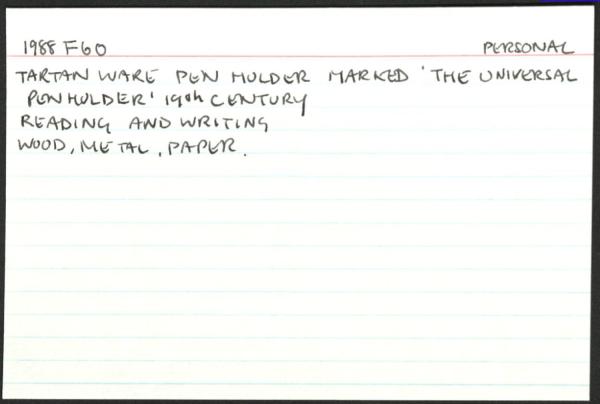 1988 F60 PERSONAL
TARTAN WARE PEN HOLDER MARKED 'THE UNIVERSAL
PEN HOLDER' 19th CENTURY
READING AND WRITING
WOOD, METAL, PAPER.